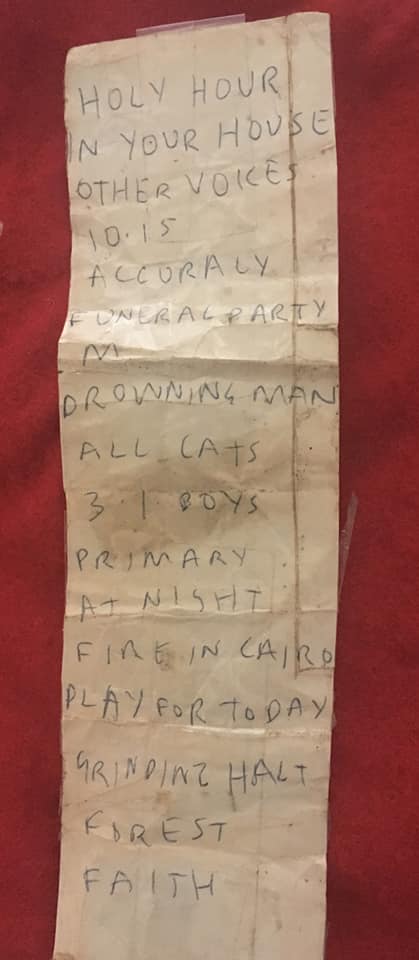 HOLY HOUR
IN YOUR HOUSE
OTHER VOICES
10.15
ACCURALY
FUNERAL PARTY
M
DROWNING MAN
ALL CATS
3.1. BOYS
PRIMARY
AT NIGHT
FIRE IN CAIRO
PLAY FOR TODAY
GRINDING HALT
FOREST
FAITH